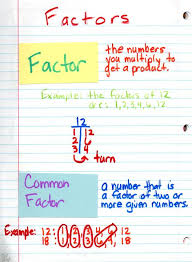 Factors
Factor
the numbers
you multiply to
get a product.
Example: the factors of 12
are: 1, 2, 3, 4, 6, 12
12
1 12
2 6
3 4
turn
Common
Factor
a number that is
a factor of two or
more given numbers.
Example: 12: 1 2 3 4 6, 12
18: 1 2 3 6 9, 18